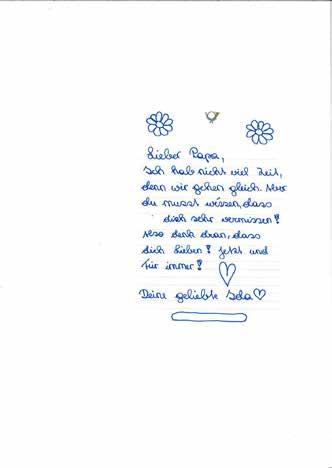 Lieber Papa,
Ich hab nicht viel Zeit,
denn wir gehen gleich. Aber
du musst wissen, dass
dich sehr vermissen!
Also denk dran, dass
dich lieben! Jetzt und
für immer!
Deine geliebte Ida